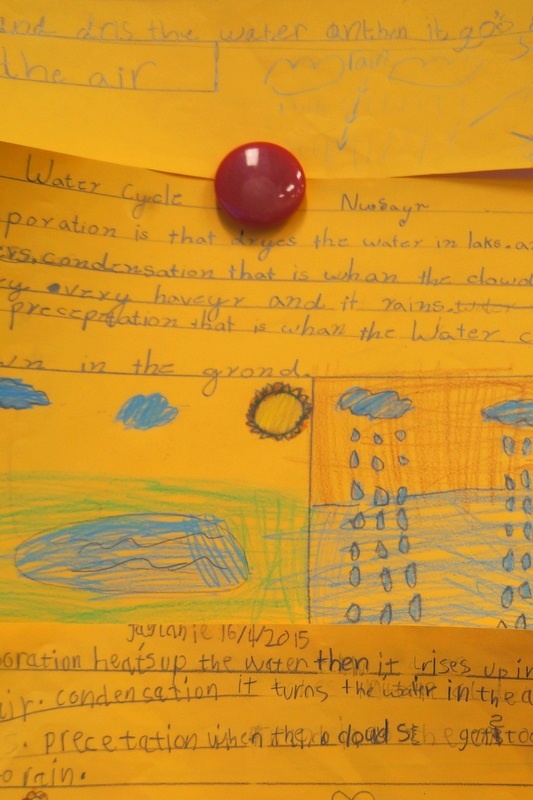 and dris the water anthen it go's
the air
rain
Water Cycle Nusayr
poration is that dryes the water in laks.a
ers.condensation that is whan the clowd
ey very haveyr and it rains.
precepetation that is whan the Water c
wn in the grond.
Jaylanie 16/4/2015
poration heat's up the water then it rises up in
air. condensation it turns the in the a
s. precetation when the cloud get too
o rain.